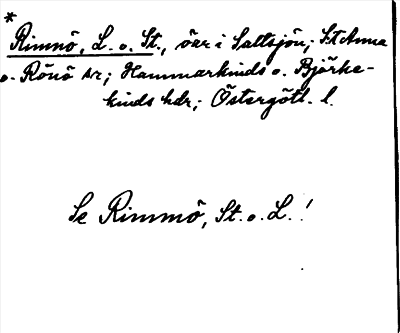 *
Rimnö, L. o. St., öar i Saltsjön; S:t Anna
o. Rönö sr; Hammarkinds o. Björke-
kinds hdr; Östergötl. l.
Se Rimmö, St. o. L.!